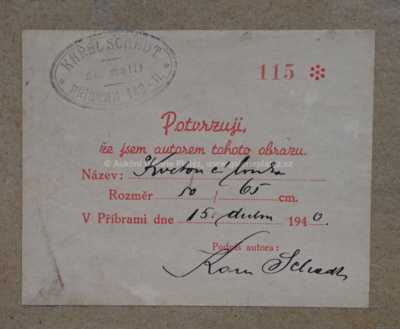 KAREL SCHADT
ak. malíř
PŘÍBRAM 142-II.
115 ✻
Potvrzuji,
že jsem autorem tohoto obrazu.
Název: Kvetoucí louka
Rozměr 50 / 65 cm.
V Příbrami dne 15. dubna 1940.
Podpis autora:
Karel Schadt